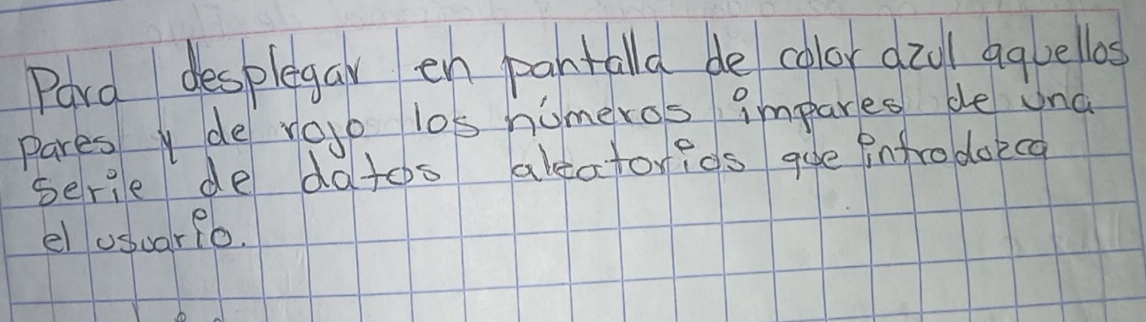 Para desplegar en pantalla de color azul aquellos
pares y de rojo los números impares de una
serie de datos aleatorios que introduzca
el usuario.